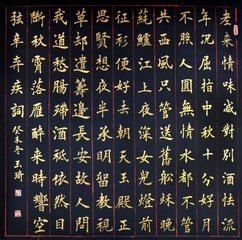 老來情味減對別酒怯流
年况屈指中秋十分好月
不照人圓無情水都不管
共西風只管送歸船秋晚
蒓鱸江上夜深兒女燈前
征衫便好去朝天玉殿正
思賢想夜半承明留教視
草却遣籌邊長安故人問
我道愁腸殢酒只依然目
斷秋霄落雁醉來時響空
弦辛弃疾詞 癸未冬玉琦